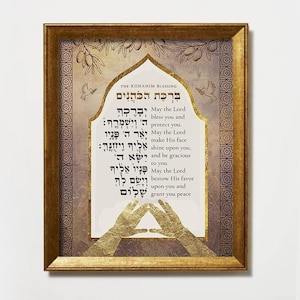 THE KOHANIM BLESSING
ברכת הכהנים
יברכך
ה' וישמרך:
יאר ה' פניו
אליך ויחנך:
ישא ה'
פניו אליך
וישם לך
שלום
May the Lord
bless you and
protect you.
May the Lord
make His face
shine upon you,
and be gracious
to you
May the Lord
bestow His favor
upon you and
grant you peace